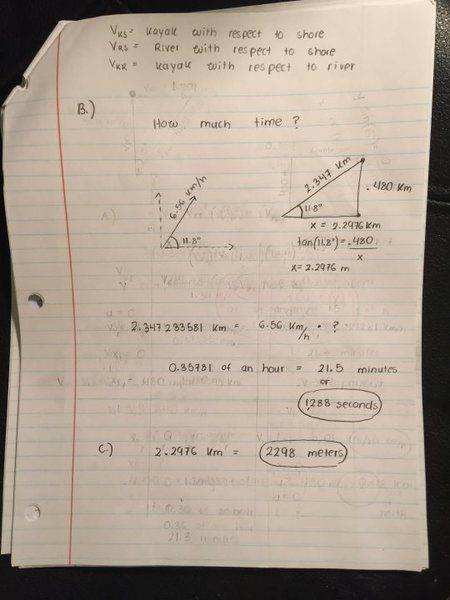 VKS = Kayak with respect to shore
VRS = River with respect to shore
VKR = Kayak with respect to river
B.)
How much time?
6.56 km/h
11.8°
2.347 Km
.480 Km
11.8°
x = 2.2976 Km
tan(11.8°) = .480/x
x = 2.2976 m
2.347233581 Km = 6.56 Km/h • ?
0.35781 of an hour = 21.5 minutes
or
1288 seconds
C.)
2.2976 Km = 2298 meters
0.36 of an hour
21.3 minutes